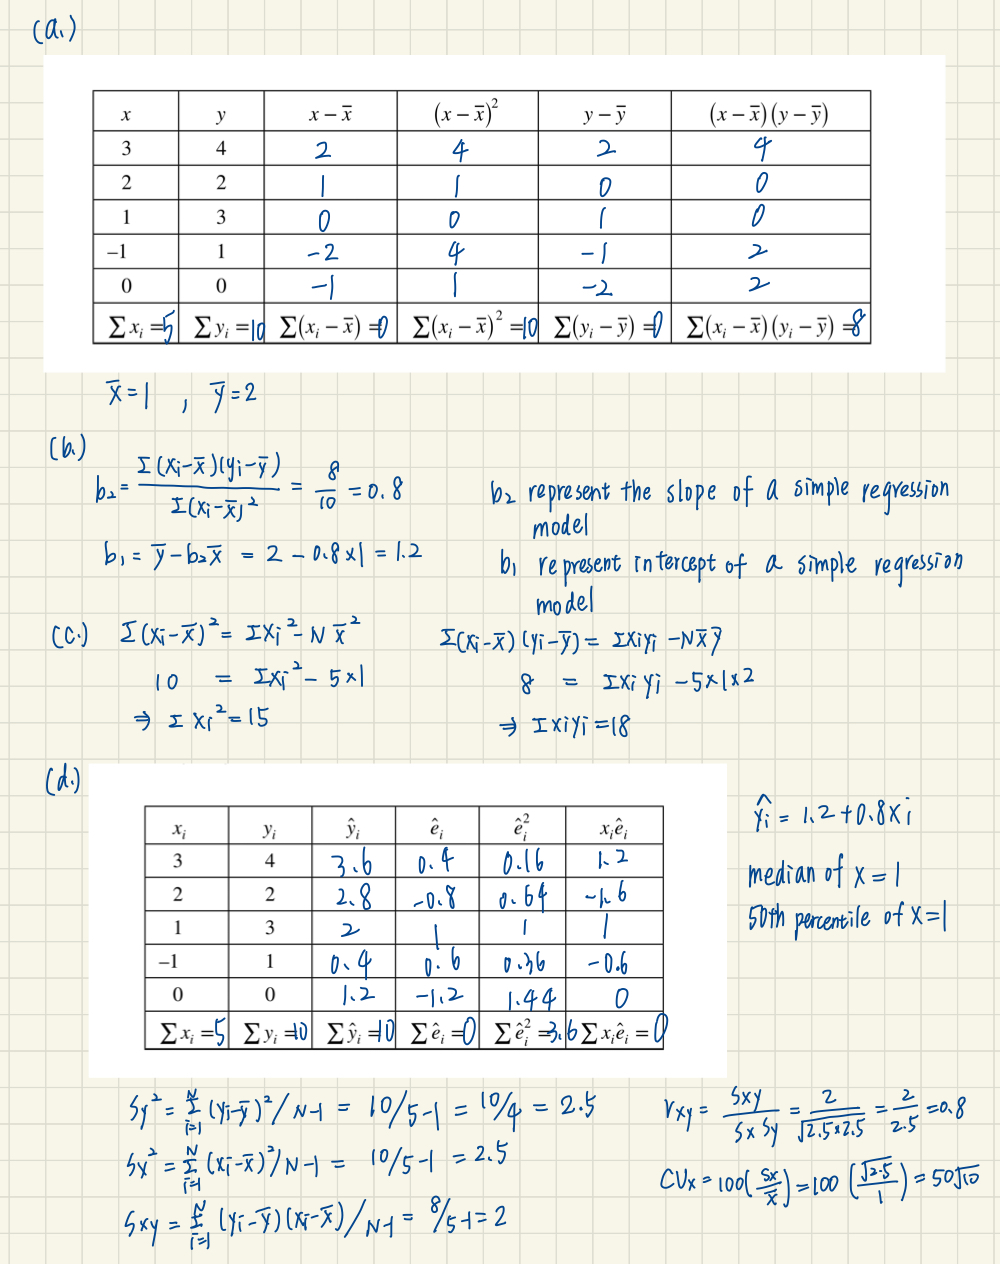 (a.)
x y x − x̄ (x − x̄)² y − ȳ (x − x̄)(y − ȳ)
3 4 2 4 2 4
2 2 1 1 0 0
1 3 0 0 1 0
−1 1 −2 4 −1 2
0 0 −1 1 −2 2
∑xᵢ =5 ∑yᵢ =10 ∑(xᵢ − x̄) =0 ∑(xᵢ − x̄)² =10 ∑(yᵢ − ȳ) =0 ∑(xᵢ − x̄)(yᵢ − ȳ) =8
x̄=1 , ȳ=2
(b.)
b₂ = Σ(xᵢ-x̄)(yᵢ-ȳ) / Σ(xᵢ-x̄)² = 8/10 = 0.8
b₁ = ȳ - b₂x̄ = 2 - 0.8×1 = 1.2
b₂ represent the slope of a simple regression
model
b₁ represent intercept of a simple regression
model
(c.) Σ(xᵢ-x̄)² = Σxᵢ² - N x̄²
10 = Σxᵢ² - 5×1
⇒ Σxᵢ² = 15
Σ(xᵢ-x̄)(yᵢ-ȳ) = Σxᵢyᵢ - Nx̄ȳ
8 = Σxᵢyᵢ - 5×1×2
⇒ Σxᵢyᵢ = 18
(d.)
xᵢ yᵢ ŷᵢ êᵢ êᵢ² xᵢêᵢ
3 4 3.6 0.4 0.16 1.2
2 2 2.8 -0.8 0.64 -1.6
1 3 2 1 1 1
−1 1 0.4 0.6 0.36 -0.6
0 0 1.2 -1.2 1.44 0
∑xᵢ =5 ∑yᵢ =10 ∑ŷᵢ =10 ∑êᵢ =0 ∑êᵢ² =3.6 ∑xᵢêᵢ = 0
ŷᵢ = 1.2+0.8xᵢ
median of x = 1
50th percentile of x=1
Sy² = Σᵢ₌₁ᴺ (yᵢ-ȳ)²/N-1 = 10/5-1 = 10/4 = 2.5
Sx² = Σᵢ₌₁ᴺ (xᵢ-x̄)²/N-1 = 10/5-1 = 2.5
Sxy = Σᵢ₌₁ᴺ (yᵢ-ȳ)(xᵢ-x̄)/N-1 = 8/5-1 = 2
rxy = Sxy/SxSy = 2/√2.5×2.5 = 2/2.5 = 0.8
CVx = 100(Sx/x̄) = 100(√2.5/1) = 50√10